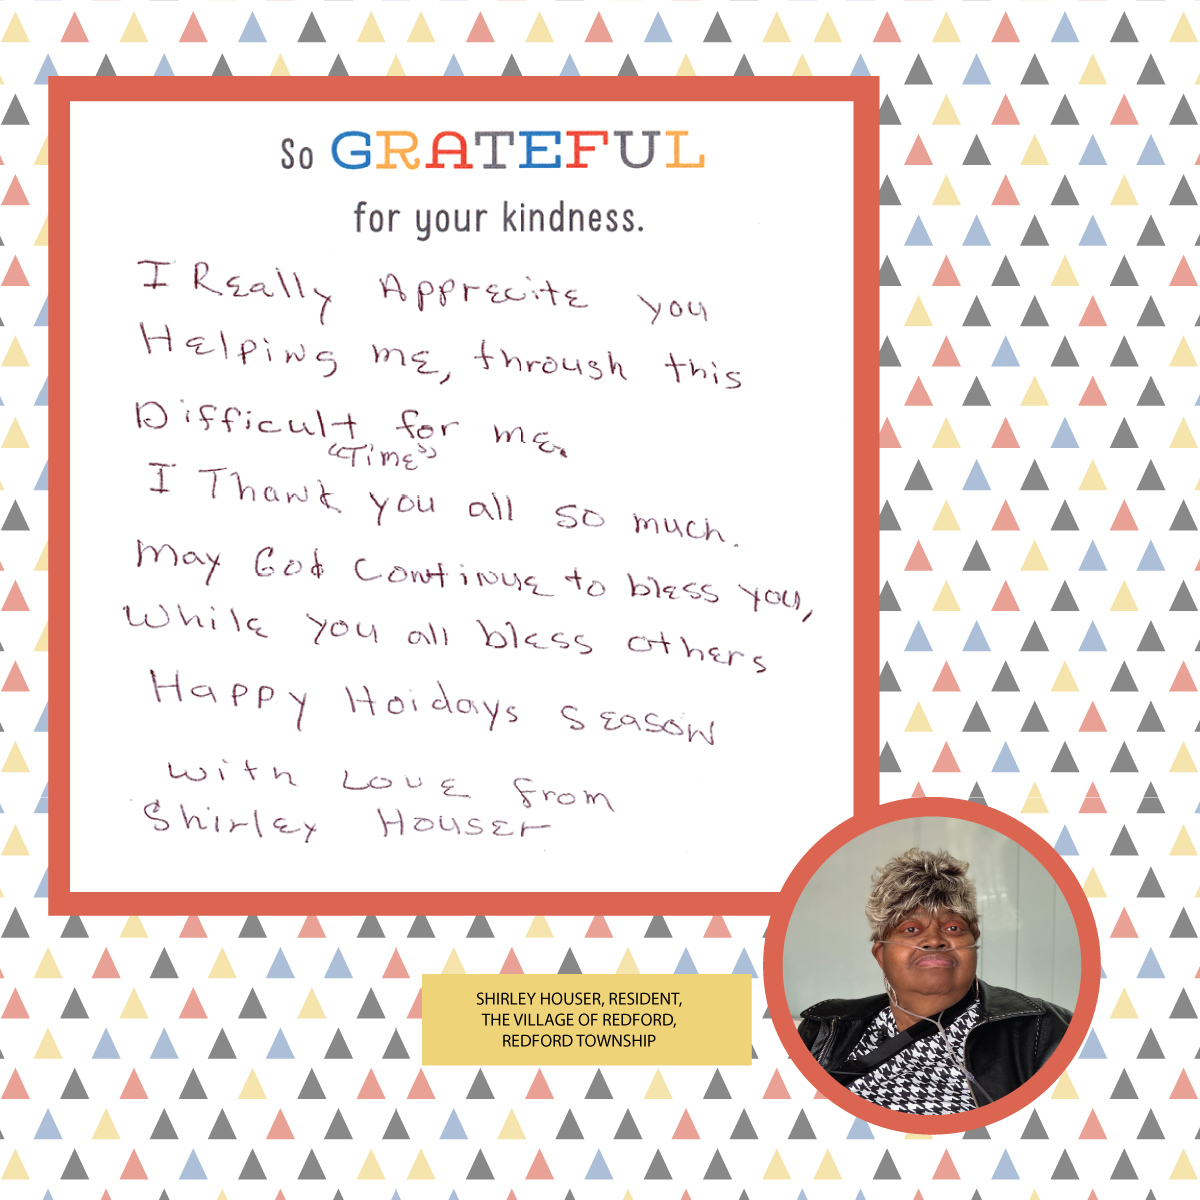 So GRATEFUL
for your kindness.
I Really Apprecite you
Helping me, through this
Difficult for me.
"Time"
I Thank you all so much.
May God continue to bless you,
While you all bless others
Happy Hoidays season
with Love from
Shirley Houser
SHIRLEY HOUSER, RESIDENT,
THE VILLAGE OF REDFORD,
REDFORD TOWNSHIP